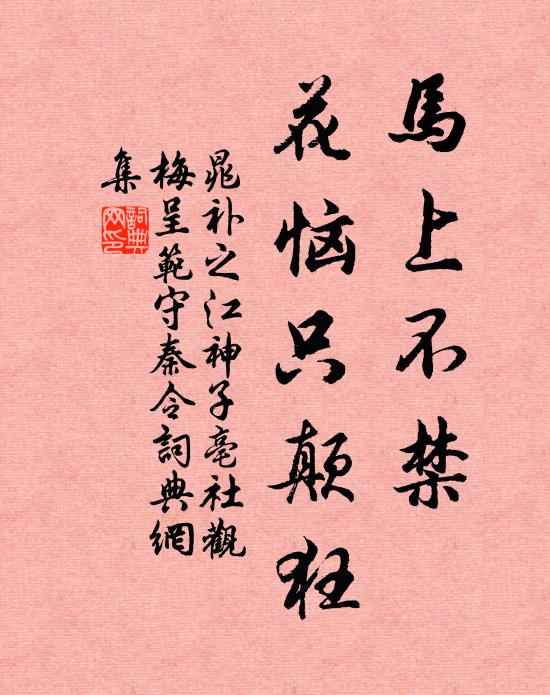 馬上不禁
花恼只颠狂
晁补之江神子亳社觀
梅呈範守秦令詞典網
集
詞典網印